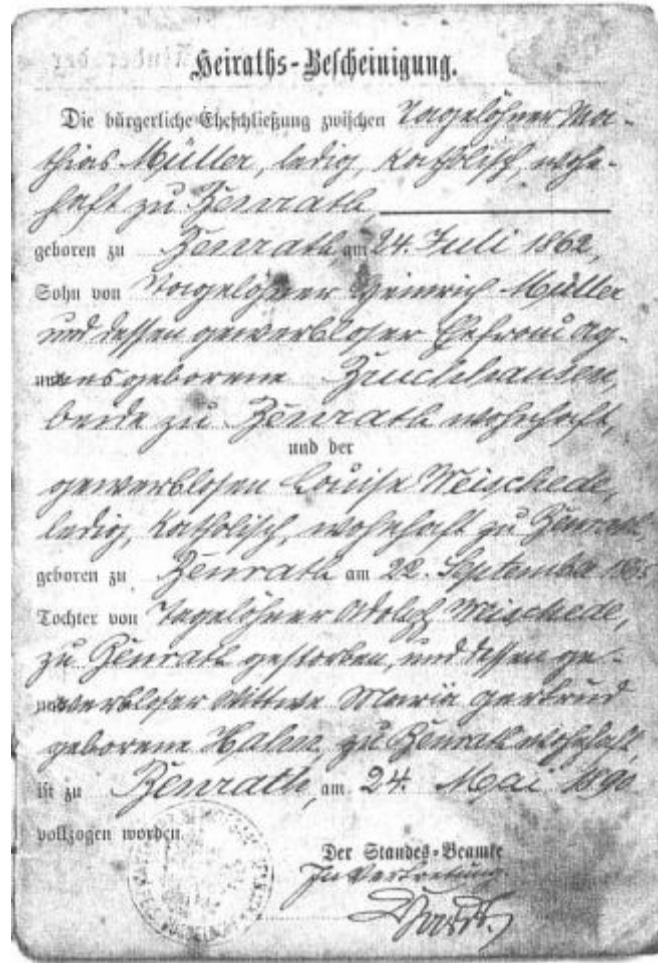 Heiraths-Bescheinigung.
Die bürgerliche Eheschließung zwischen Tagelöhner Ma-
thias Müller, ledig, katholisch, wohn-
haft zu Benrath,
geboren zu Benrath am 24. Juli 1862,
Sohn von Tagelöhner Heinrich Müller
und dessen gewerbloser Ehefrau Ag-
nes geborene
beide zu Benrath wohnhaft,
und der
gewerblosen Louise Meischede,
ledig, katholisch, wohnhaft zu Benrath,
geboren zu Benrath am 22. September
Tochter von Tagelöhner Adolph Meischede,
zu Benrath gestorben, und dessen ge-
werbloser Wittwe Maria Gertrud
geborene Hahn, zu Benrath wohnhaft,
ist zu Benrath, am 24. Mai 1890
vollzogen worden.
Der Standes-Beamte
In Vertretung